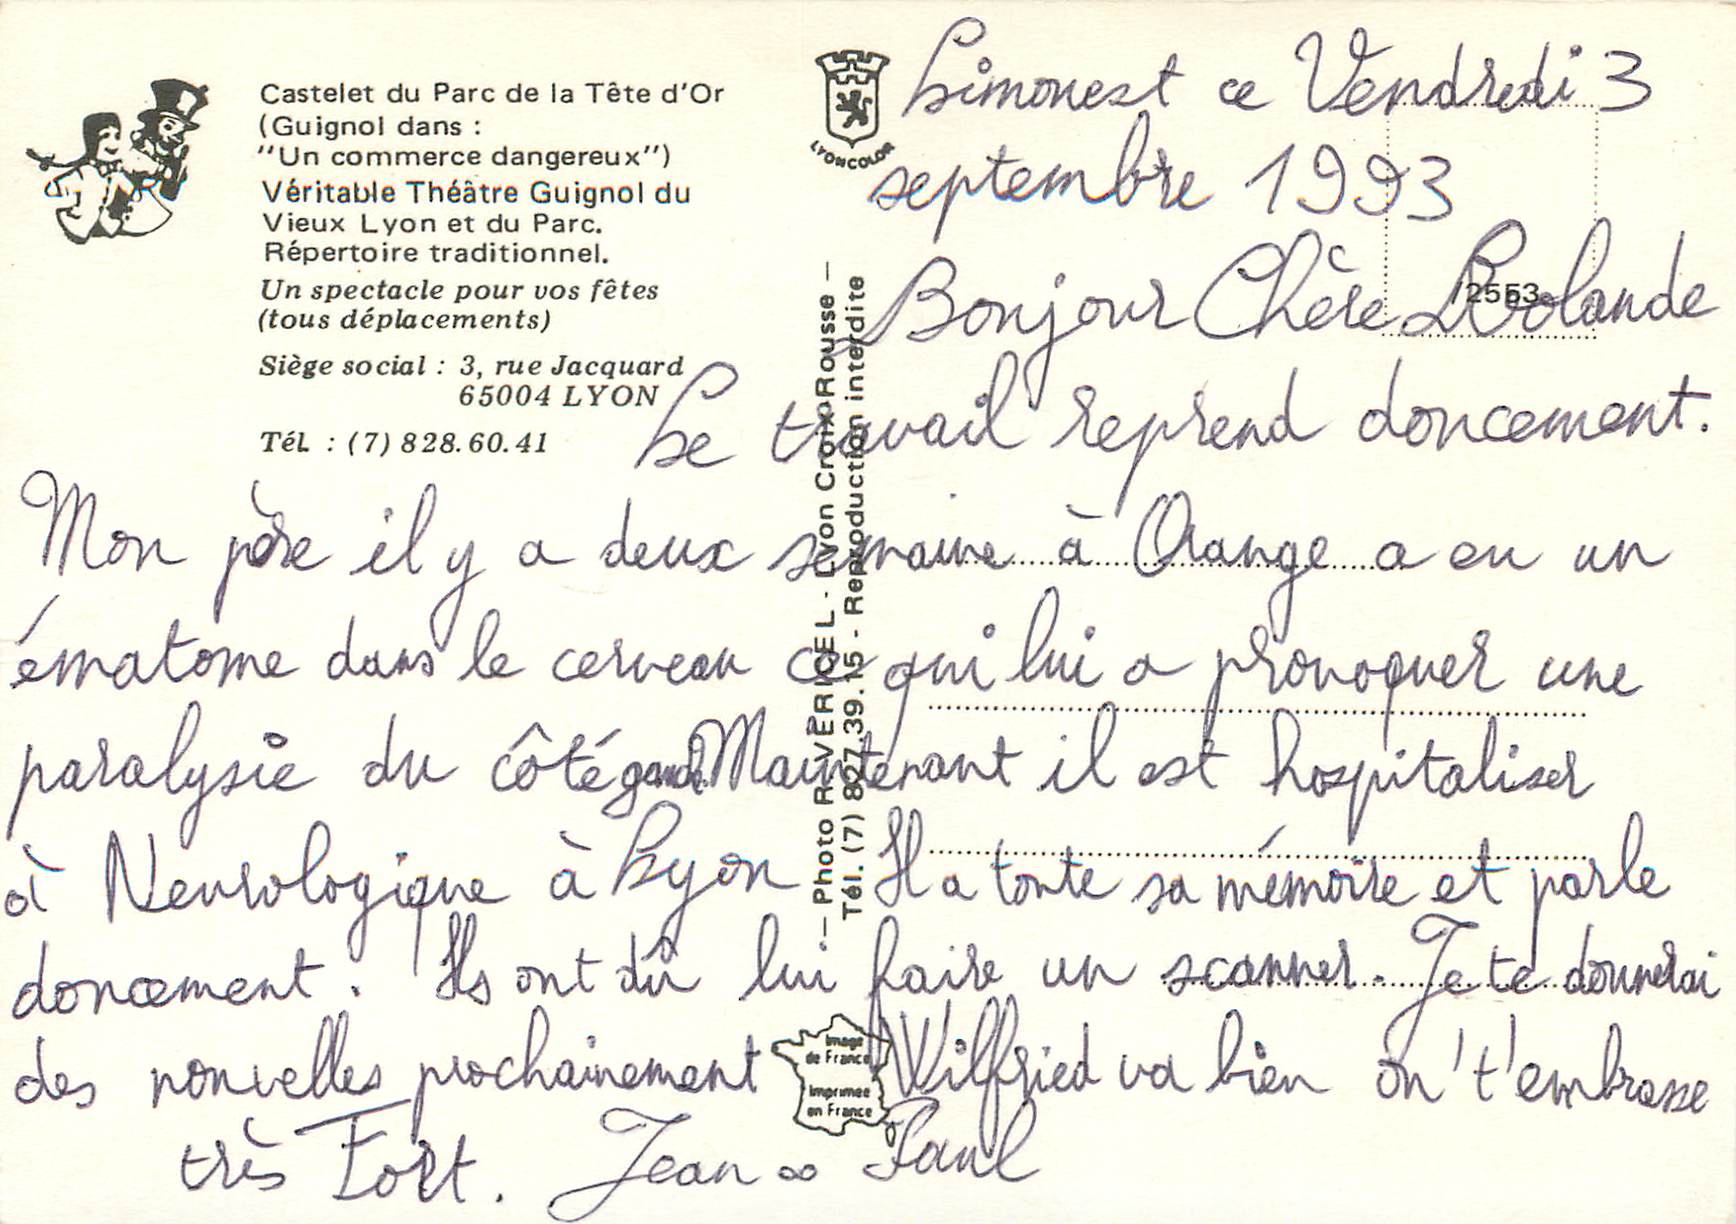 Castelet du Parc de la Tête d'Or
(Guignol dans :
"Un commerce dangereux")
Véritable Théâtre Guignol du
Vieux Lyon et du Parc.
Répertoire traditionnel.
Un spectacle pour vos fêtes
(tous déplacements)
Siège social : 3, rue Jacquard
65004 LYON
Tél. : (7) 828.60.41
LYONCOLOR
— Photo R. VERICEL - Lyon Croix-Rousse —
Tél. (7) 827.39.15 - Reproduction interdite
12553
Image
de France
Imprimée
en France
Limonest ce Vendredi 3
septembre 1993
Bonjour Chère Rolande
Le travail reprend doucement.
Mon père il y a deux semaine à Orange a eu un
ématome dans le cerveau ce qui lui a provoquer une
paralysie du côté gauche. Maintenant il est hospitaliser
à Neurologique à Lyon Il a toute sa mémoire et parle
doucement. Ils ont dû lui faire un scanner. Je te donnerai
des nouvelles prochainement Wilfried va bien on t'embrasse
très Fort. Jean Paul